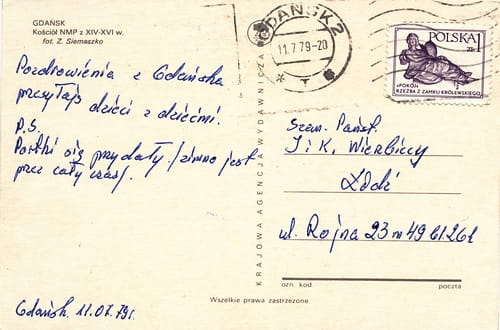 GDAŃSK
Kościół NMP z XIV-XVI w.
fot. Z. Siemaszko
GDAŃSK 2
11.7.79-20
POLSKA
zł 1
»POKÓJ«
RZEŹBA Z ZAMKU KRÓLEWSKIEGO
Pozdrowienia z Gdańska
przesyłają dzieci z dziećmi.
P.S.
Portki się przydały /zimno jest
przez cały czas/.
KRAJOWA AGENCJA WYDAWNICZA
Szan. Państ.
J i K. Wierbiccy
Łódź
ul. Rojna 23 m 49 bl 261
ozn. kod
poczta
Wszelkie prawa zastrzeżone
Gdańsk 11.07.79r.